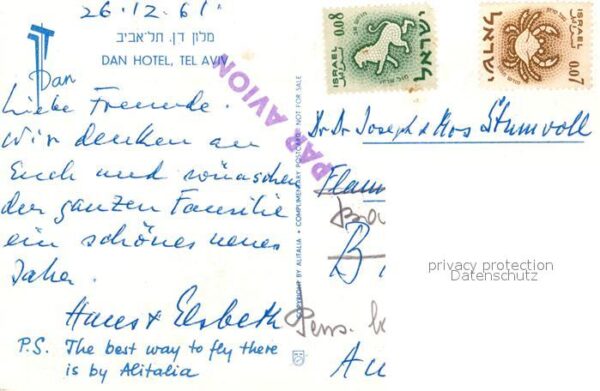 26.12.61.
מלון דן. תל־אביב
DAN HOTEL, TEL AVIV
Dan
Liebe Freunde.
Wir denken an
Euch und wünschen
der ganzen Familie
ein schönes neues
Jahr.
Hans + Elsbeth
P.S. The best way to fly there
is by Alitalia
PAR AVION
COPYRIGHT BY ALITALIA • COMPLIMENTARY POSTCARD NOT FOR SALE
ISRAEL 0.08
ישראל
ISRAEL
0.07
ישראל
Dr. Dr. Joseph & Stumvoll
Flam
B
Pens.
Au
privacy protection
Datenschutz